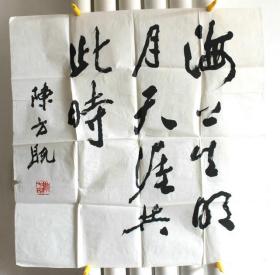 海上生明
月天涯共
此时
陈方既